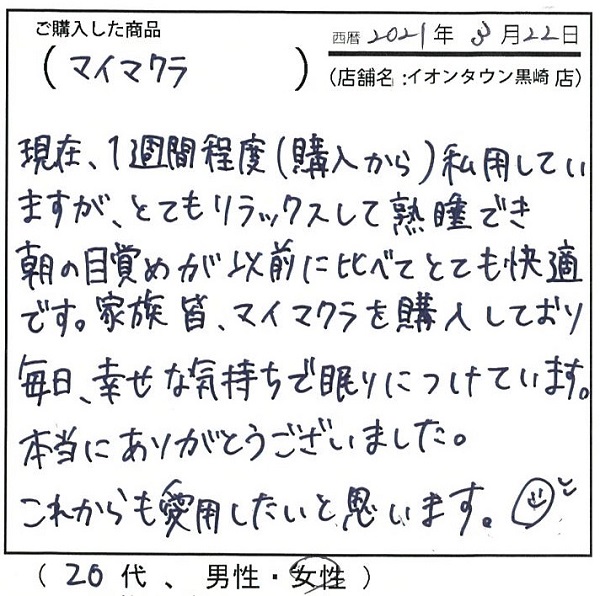 ご購入した商品
西暦 2021年 3月22日
(マイマクラ)
(店舗名:イオンタウン黒崎 店)
現在、1週間程度(購入から)私用してい
ますが、とてもリラックスして熟睡でき
朝の目覚めが以前に比べてとても快適
です。家族皆、マイマクラを購入しており
毎日、幸せな気持ちで眠りにつけています。
本当にありがとうございました。
これからも愛用したいと思います。
(20代、男性・女性)